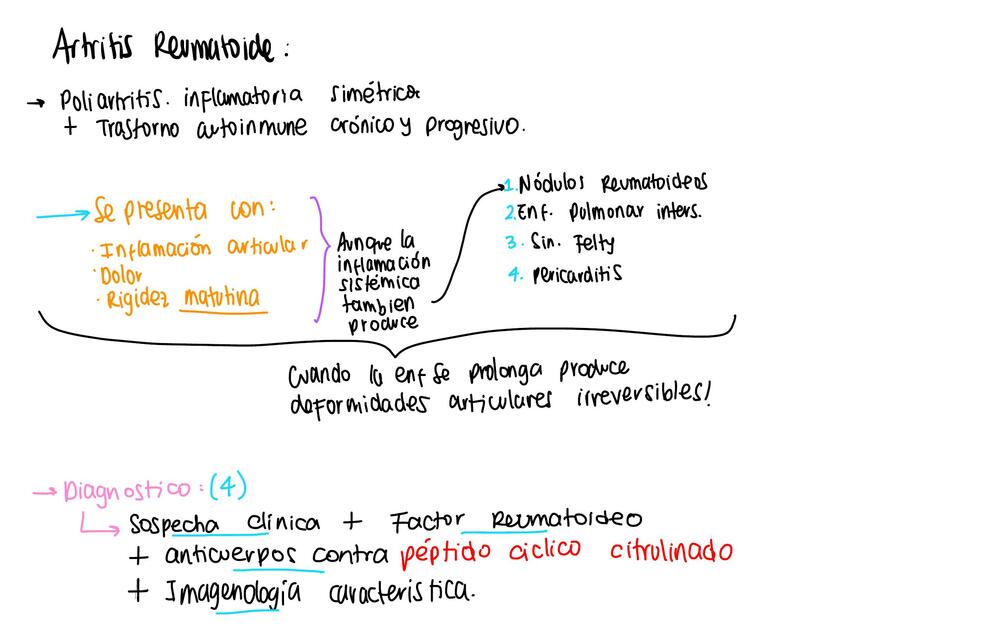 Artritis Reumatoide:
→ Poliartritis. inflamatoria simétrica
+ Trastorno autoinmune crónico y progresivo.
→ Se presenta con:
· Inflamación articular
· Dolor
· Rigidez matutina
Aunque la
inflamación
sistémica
tambien
produce
1. Nódulos Reumatoideos
2. Enf. Pulmonar inters.
3. Sin. Felty
4. Pericarditis
Cuando la enf se prolonga produce
deformidades articulares irreversibles!
→ Diagnostico: (4)
Sospecha clínica + Factor Reumatoideo
+ anticuerpos contra péptido ciclico citrulinado
+ Imagenología caracteristica.